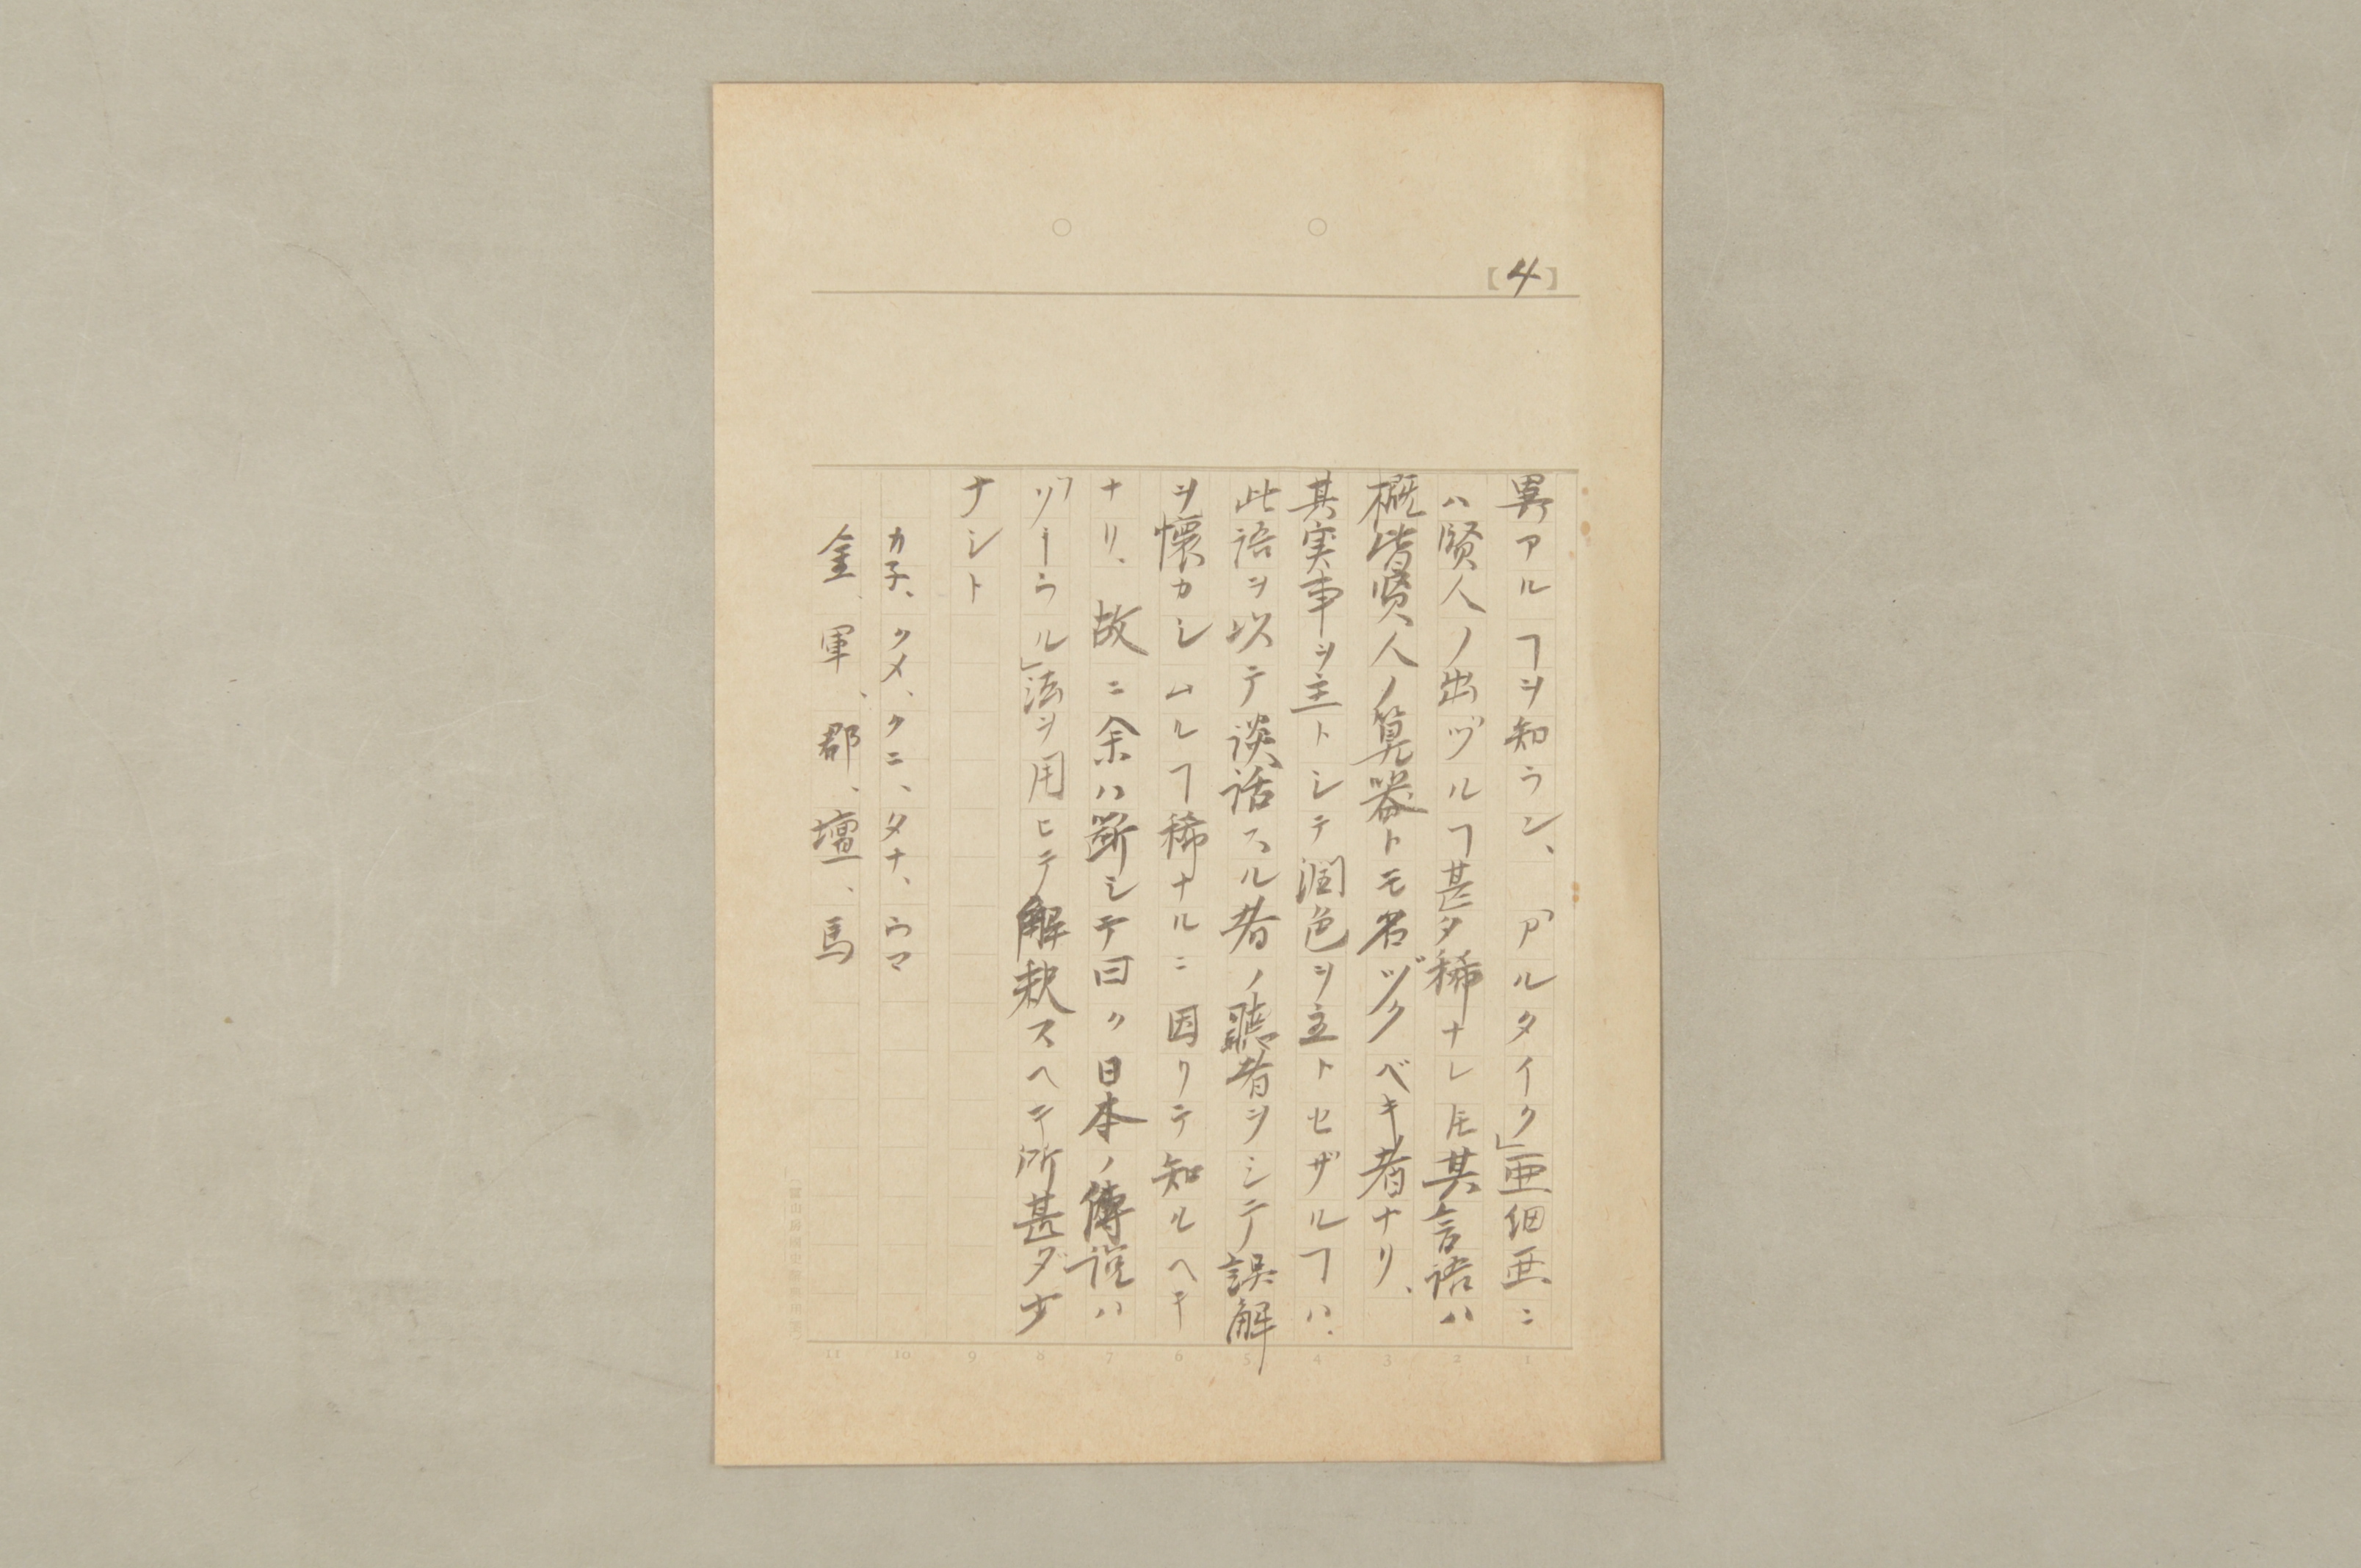 【4】
異アルヿヲ知ラン、「アルタイク」亜細亜ニ
ハ賢人ノ出ヅルヿ甚タ稀ナレ𪜈其言語ハ
概皆賢人ノ算器トモ名ヅクベキ者ナリ、
其実事ヲ主トシテ潤色ヲ主トセザルヿハ、
此語ヲ以テ談話スル者ノ聽者ヲシテ誤解
ヲ懐カシムルヿ稀ナルニ因リテ知ルヘキ
ナリ、故ニ余ハ断シテ曰ク日本ノ傳說ハ
「ソーラル」法ヲ用ヒテ解釈スヘキ所甚ダ少
ナシト
カ子、クメ、クニ、タナ、ウマ
金、軍、郡、壇、馬
1 2 3 4 5 6 7 8 9 10 11